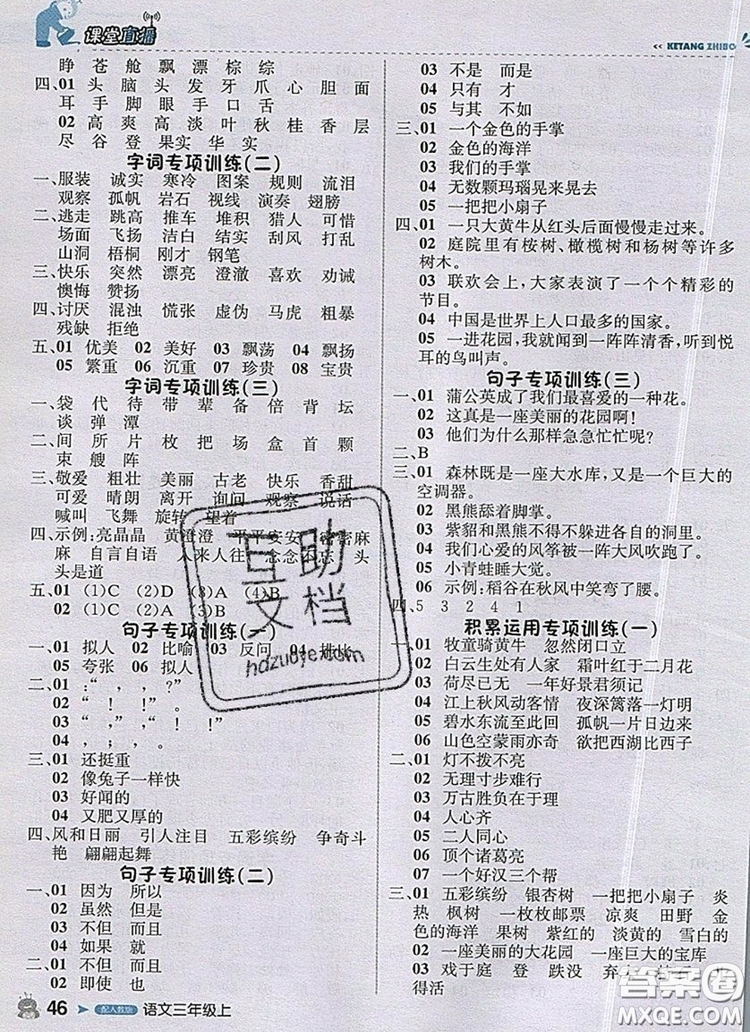 课堂直播
<< KETANG ZHIBO
睁 苍 舱 飘 漂 棕 综
四、01 头 脑 头 发 牙 爪 心 胆 面
耳 手 脚 眼 手 口 舌
02 高 爽 高 淡 叶 秋 桂 香 层
尽 谷 登 果实 华 实
字词专项训练(二)
一、服装 诚实 寒冷 图案 规则 流泪
观察 孤帆 岩石 视线 演奏 翅膀
二、逃走 跳高 推车 堆积 猎人 可惜
场面 飞扬 洁白 结实 刮风 打乱
山洞 梧桐 刚才 钢笔
三、快乐 突然 漂亮 澄澈 喜欢 劝诫
懊悔 赞扬
四、讨厌 混浊 慌张 虚伪 马虎 粗暴
残缺 拒绝
五、01 优美 02 美好 03 飘荡 04 飘扬
05 繁重 06 沉重 07 珍贵 08 宝贵
字词专项训练(三)
一、袋 代 待 带 辈 备 倍 背 坛
谈 弹 潭
二、间 所 片 枚 把 场 盒 首 颗
束 艘 阵
三、敬爱 粗壮 美丽 古老 快乐 香甜
可爱 晴朗 离开 询问 观察 说话
喊叫 飞舞 旋转 望着
四、示例:亮晶晶 黄澄澄 平平安安 密密麻
麻 自言自语 人来人往 念念不忘 头
头是道
五、01 (1)C (2)D (3)A (4)B
02 (1)C (2)A (3)B
句子专项训练(一)
一、01 拟人 02 比喻 03 反问 04 排比
05 夸张 06 拟人
二、01 :“ , ” , “ ?”
02 “ ! ! ”。
03 “ , ” , “ ! ! ”
04 , ; , 。
三、01 还挺重
02 像兔子一样快
03 好闻的
04 又肥又厚的
四、风和日丽 引人注目 五彩缤纷 争奇斗
艳 翩翩起舞
句子专项训练(二)
一、01 因为 所以
02 虽然 但是
03 不但 而且
04 如果 就
二、01 不但 而且
02 即使 也
03 不是 而是
04 只有 才
05 与其 不如
三、01 一个金色的手掌
02 金色的海洋
03 我们的手掌
04 无数颗玛瑙晃来晃去
05 一把把小扇子
四、01 一只大黄牛从红头后面慢慢走过来。
02 庭院里有桉树、橄榄树和杨树等许多
树木。
03 联欢会上,大家表演了一个个精彩的
节目。
04 中国是世界上人口最多的国家。
05 一进花园,我就闻到一阵阵清香,听到悦
耳的鸟叫声。
句子专项训练(三)
一、01 蒲公英成了我们最喜爱的一种花。
02 这真是一座美丽的花园啊!
03 他们为什么那样急急忙忙呢?
二、B
三、01 森林既是一座大水库,又是一个巨大的
空调器。
02 黑熊舔着脚掌。
03 紫貂和黑熊不得不躲进各自的洞里。
04 我们心爱的风筝被一阵大风吹跑了。
05 小青蛙睡大觉。
06 示例:稻谷在秋风中笑弯了腰。
四、5 3 2 4 1
积累运用专项训练(一)
一、01 牧童骑黄牛 忽然闭口立
02 白云生处有人家 霜叶红于二月花
03 荷尽已无 一年好景君须记
04 江上秋风动客情 夜深篱落一灯明
05 碧水东流至此回 孤帆一片日边来
06 山色空蒙雨亦奇 欲把西湖比西子
二、01 灯不拨不亮
02 无理寸步难行
03 万古胜负到如今
04 人心齐
05 二人同心
06 顶个诸葛亮
07 一个好汉三个帮
三、01 五彩缤纷 银杏树 一把把小扇子 炎
热 枫树 一枚枚邮票 凉爽 田野 金
色的海洋 果树 紫红的 淡黄的 雪白的
02 一座美丽的大花园 一座巨大的宝库
03 戏于庭 登 跌没
得活
46
配人教版
语文三年级上
互助文档
hdzuoye.com
答案圈
MXQE.COM